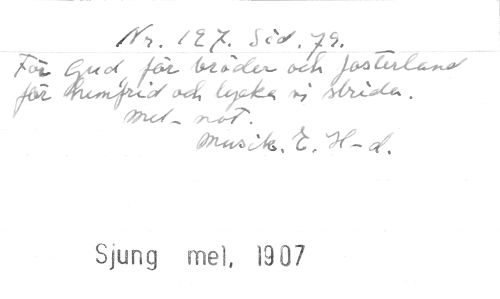 Nr. 127. Sid. 79.
För Gud, för bröder och fosterland
för hemfrid och lycka vi strida.
mel-not.
Musik. E. H-d.
Sjung mel, 1907